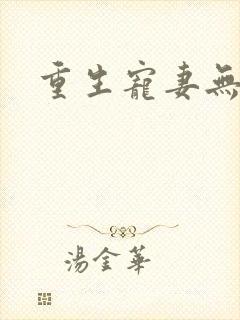 重生寵妻無
湯金華